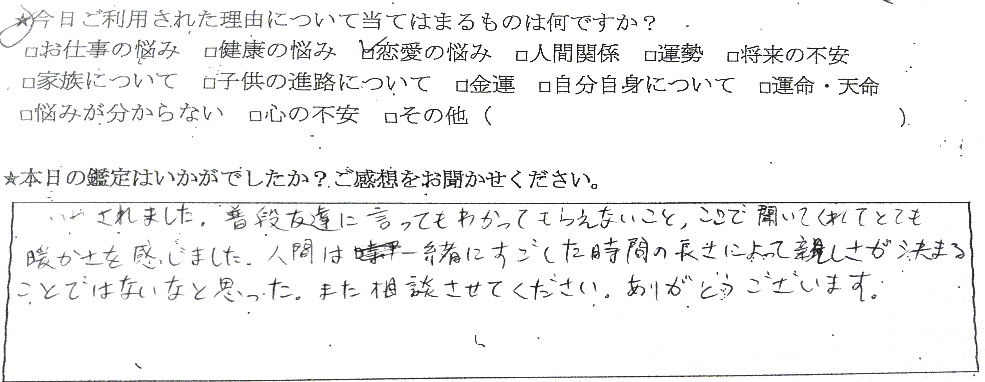 ★今日ご利用された理由について当てはまるものは何ですか？
□お仕事の悩み □健康の悩み ☑恋愛の悩み □人間関係 □運勢 □将来の不安
□家族について □子供の進路について □金運 □自分自身について □運命・天命
□悩みが分からない □心の不安 □その他（ ）
★本日の鑑定はいかがでしたか？ご感想をお聞かせください。
いやされました。普段友達に言ってもわかってもらえないこと、ここで聞いてくれてとても
暖かさを感じました。人間は一緒にすごした時間の長さによって親しさが決まる
ことではないなと思った。また相談させてください。ありがとうございます。